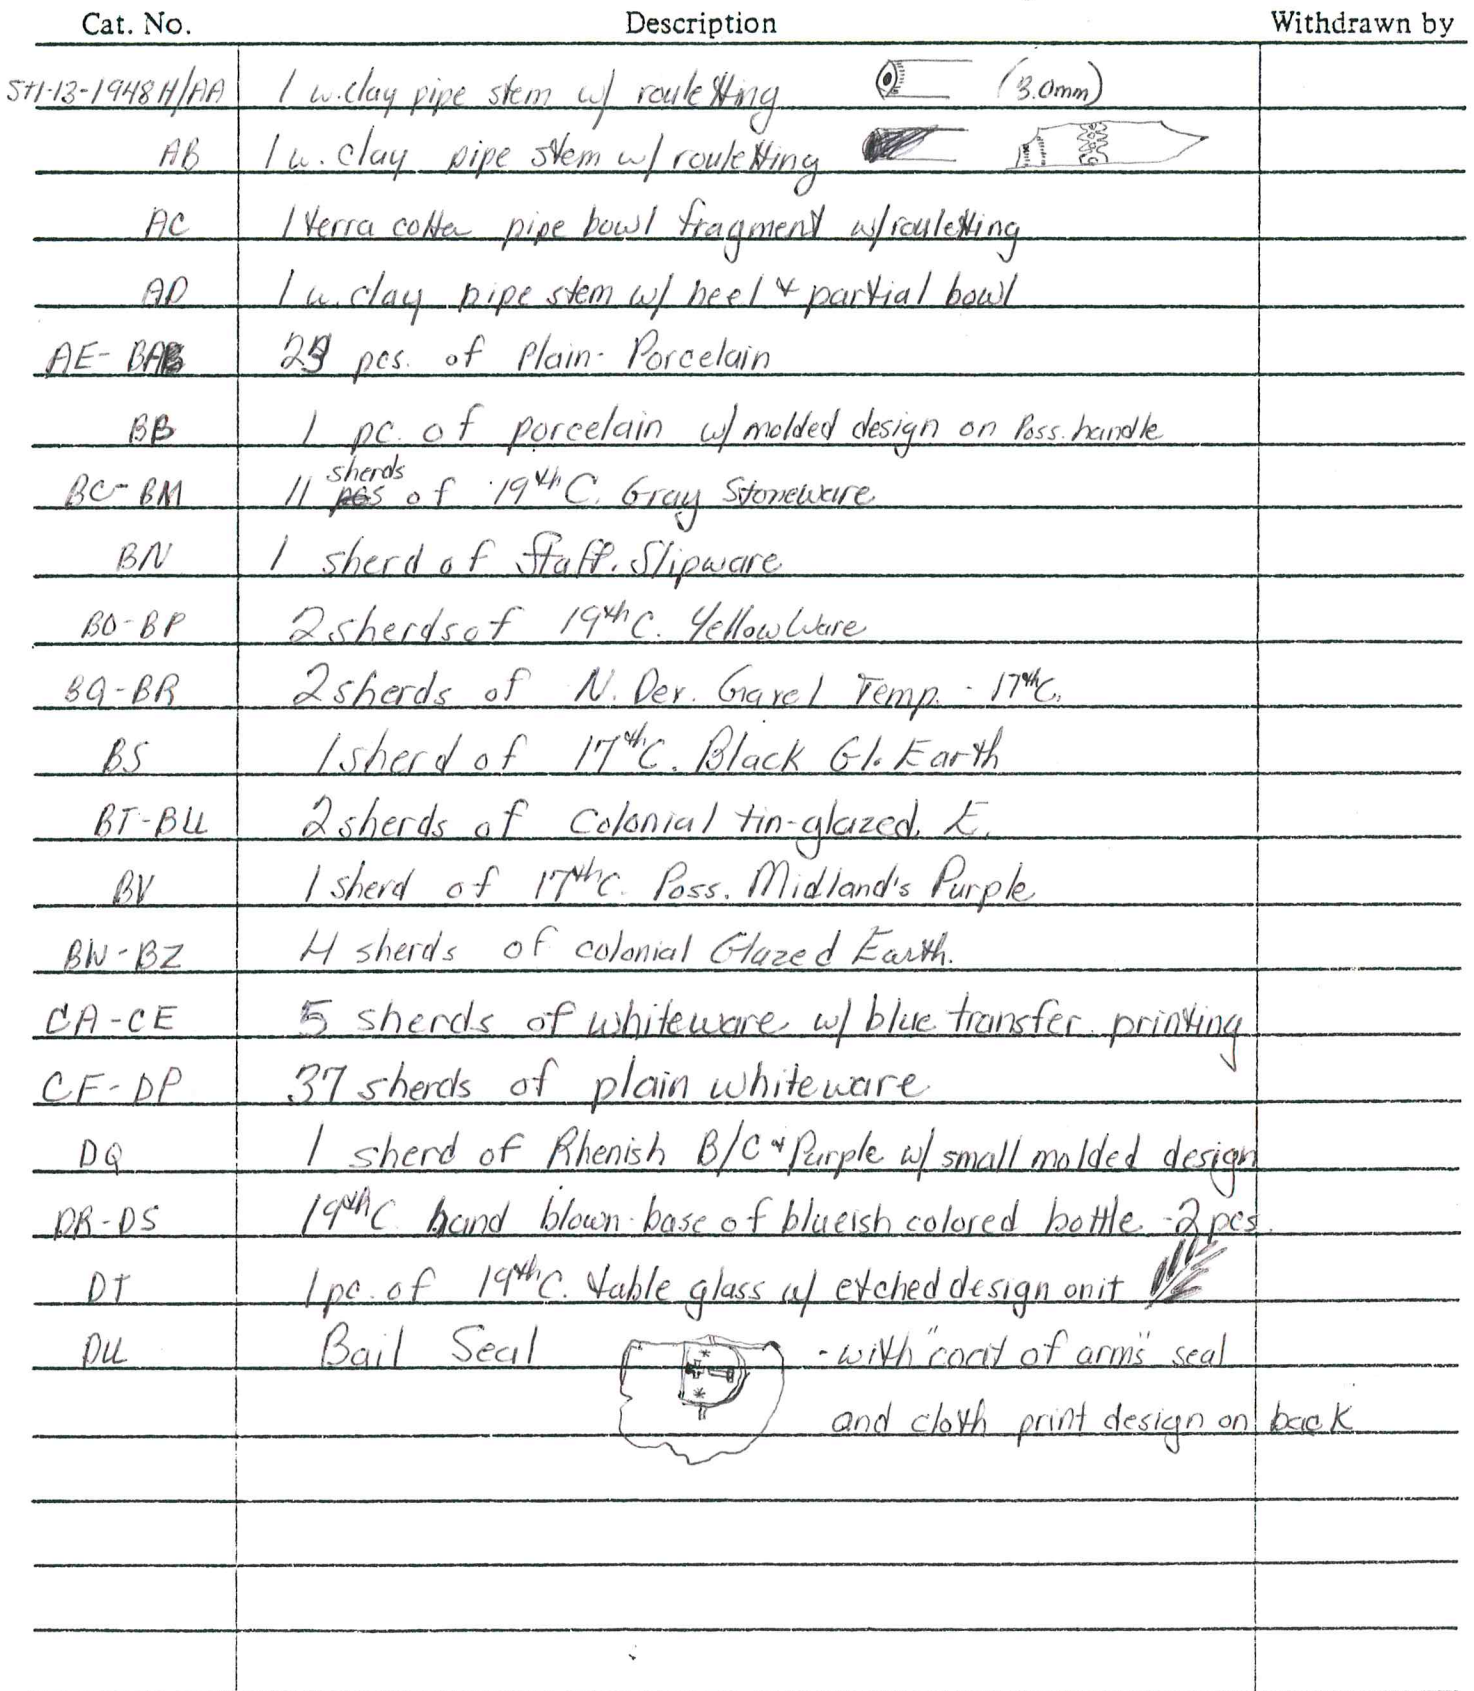 Cat. No. Description Withdrawn by
ST1-13-1948H/AA 1 w. clay pipe stem w/ rouletting (3.0mm)
AB 1 w. clay pipe stem w/ rouletting
AC 1 terra cotta pipe bowl fragment w/rouletting
AD 1 w. clay pipe stem w/ heel & partial bowl
AE- BA pcs. of Plain- Porcelain
BB 1 pc. of porcelain w/ molded design on Poss. handle
sherds
BC- BM 11 pcs of 19th C. Gray Stoneware
BN 1 sherd of Staff. Slipware
BO-BP 2 sherds of 19th C. Yellow Ware
BQ-BR 2 sherds of N. Dev. Gravel Temp. - 17th C.
BS 1 sherd of 17th C. Black Gl. Earth
BT-BU 2 sherds of Colonial tin-glazed E.
BV 1 sherd of 17th C. Poss. Midland's Purple
BW-BZ 4 sherds of colonial Glazed Earth.
CA-CE 5 sherds of whiteware w/ blue transfer printing
CF-DP 37 sherds of plain whiteware
DQ 1 sherd of Rhenish B/C & Purple w/ small molded design
DR-DS 19th C hand blown base of blueish colored bottle - 2 pcs.
DT 1 pc. of 19th C. table glass w/ etched design on it
DU Bail Seal - with "coat of arms" seal
and cloth print design on back